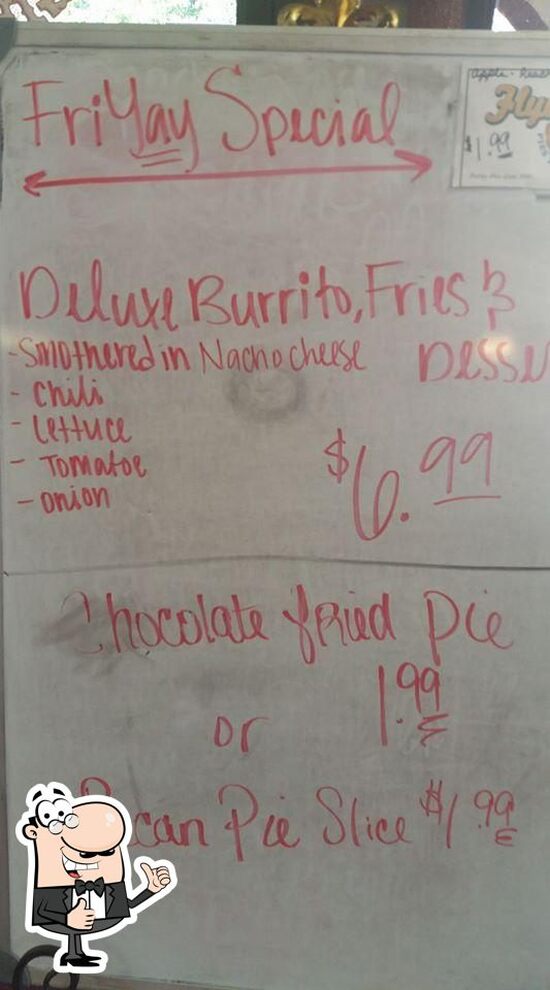 FriYay Special
Apple - 
$1.99
Deluxe Burrito, Fries &
- Smothered in Nacho cheese
Desse
- Chili
- Lettuce
- Tomatoe
- onion
$6.99
Chocolate fried pie
1.99
or
can Pie Slice $1.99